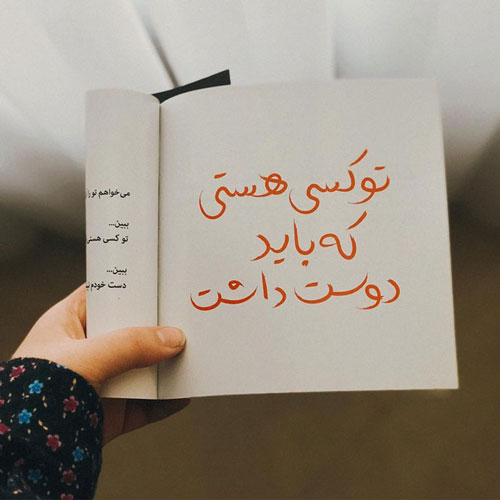 تو کسی هستی
که باید
دوست داشت
می‌خواهم تو را
ببین...
تو کسی هستی
ببین...
دست خودم